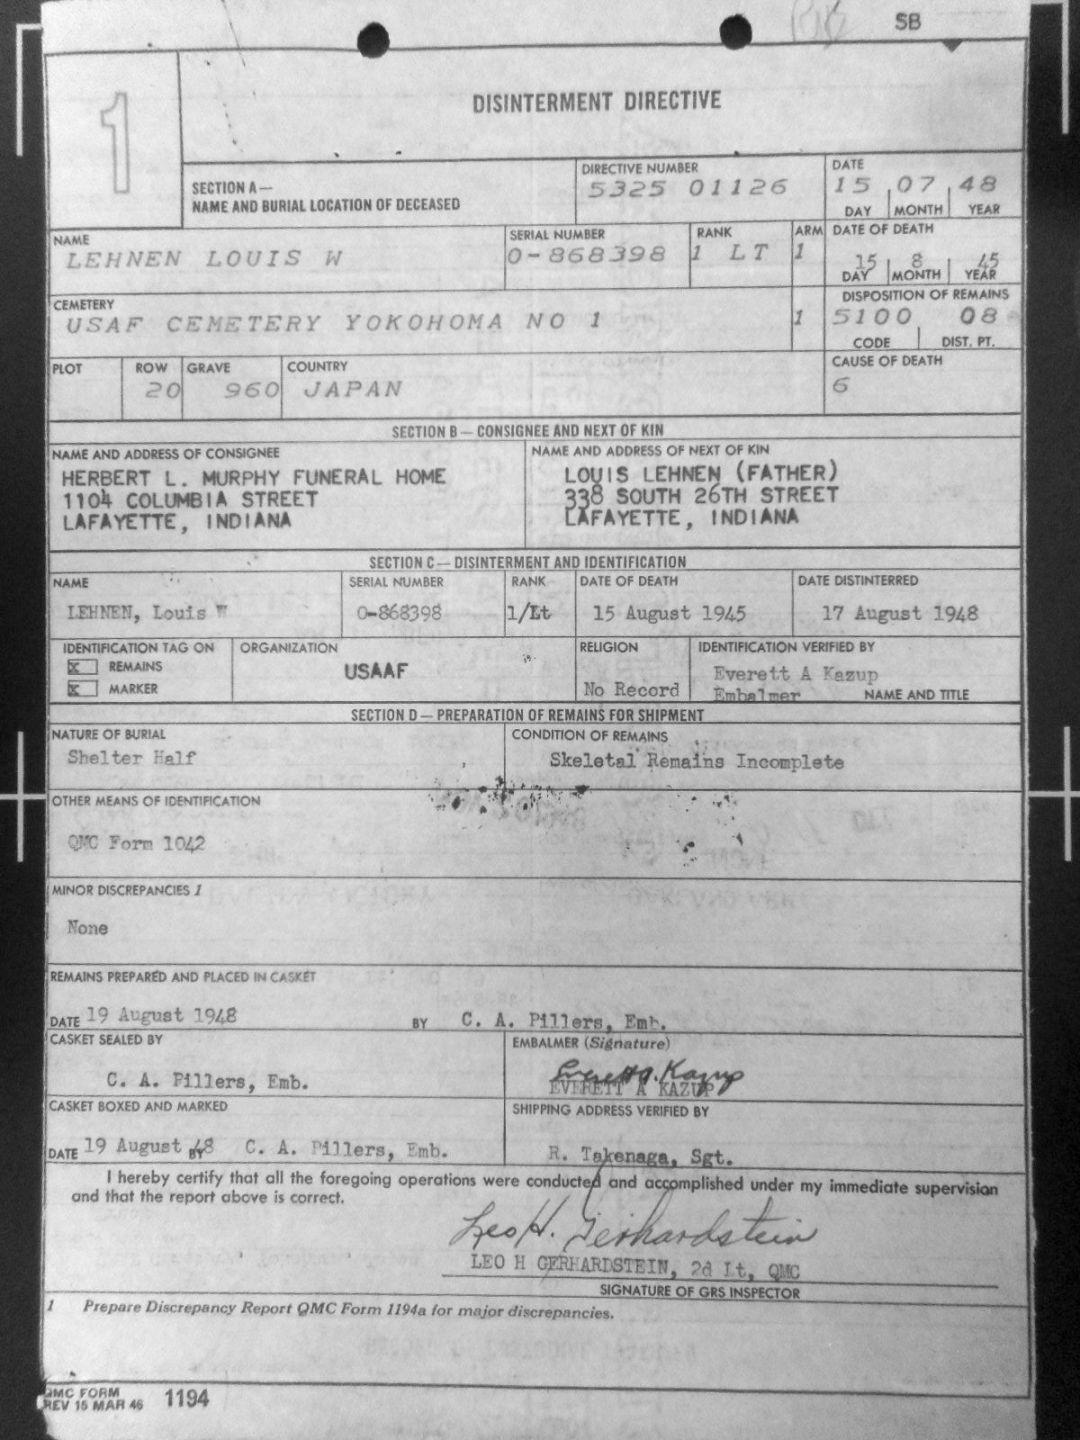 SB
1
DISINTERMENT DIRECTIVE
SECTION A—
NAME AND BURIAL LOCATION OF DECEASED
DIRECTIVE NUMBER
5325 01126
DATE
15 07 48
DAY MONTH YEAR
NAME
LEHNEN LOUIS W
SERIAL NUMBER
0-868398
RANK
1 LT
ARM
1
DATE OF DEATH
15 8 45
DAY MONTH YEAR
CEMETERY
USAF CEMETERY YOKOHOMA NO 1
1
DISPOSITION OF REMAINS
5100 08
CODE DIST. PT.
PLOT
ROW
20
GRAVE
960
COUNTRY
JAPAN
CAUSE OF DEATH
6
SECTION B — CONSIGNEE AND NEXT OF KIN
NAME AND ADDRESS OF CONSIGNEE
HERBERT L. MURPHY FUNERAL HOME
1104 COLUMBIA STREET
LAFAYETTE, INDIANA
NAME AND ADDRESS OF NEXT OF KIN
LOUIS LEHNEN (FATHER)
338 SOUTH 26TH STREET
LAFAYETTE, INDIANA
SECTION C — DISINTERMENT AND IDENTIFICATION
NAME
LEHNEN, Louis W
SERIAL NUMBER
0-868398
RANK
1/Lt
DATE OF DEATH
15 August 1945
DATE DISTINTERRED
17 August 1948
IDENTIFICATION TAG ON
X REMAINS
X MARKER
ORGANIZATION
USAAF
RELIGION
No Record
IDENTIFICATION VERIFIED BY
Everett A Kazup
Embalmer NAME AND TITLE
SECTION D — PREPARATION OF REMAINS FOR SHIPMENT
NATURE OF BURIAL
Shelter Half
CONDITION OF REMAINS
Skeletal Remains Incomplete
OTHER MEANS OF IDENTIFICATION
QMC Form 1042
MINOR DISCREPANCIES 1
None
REMAINS PREPARED AND PLACED IN CASKET
DATE 19 August 1948 BY C. A. Pillers, Emb.
CASKET SEALED BY
C. A. Pillers, Emb.
EMBALMER (Signature)
Everett A. Kazup
EVERETT A KAZUP
CASKET BOXED AND MARKED
DATE 19 August 48 BY C. A. Pillers, Emb.
SHIPPING ADDRESS VERIFIED BY
R. Takenaga, Sgt.
I hereby certify that all the foregoing operations were conducted and accomplished under my immediate supervision
and that the report above is correct.
Leo H. Gerhardstein
LEO H GERHARDSTEIN, 2d Lt, QMC
SIGNATURE OF GRS INSPECTOR
1 Prepare Discrepancy Report QMC Form 1194a for major discrepancies.
QMC FORM
REV 15 MAR 46 1194